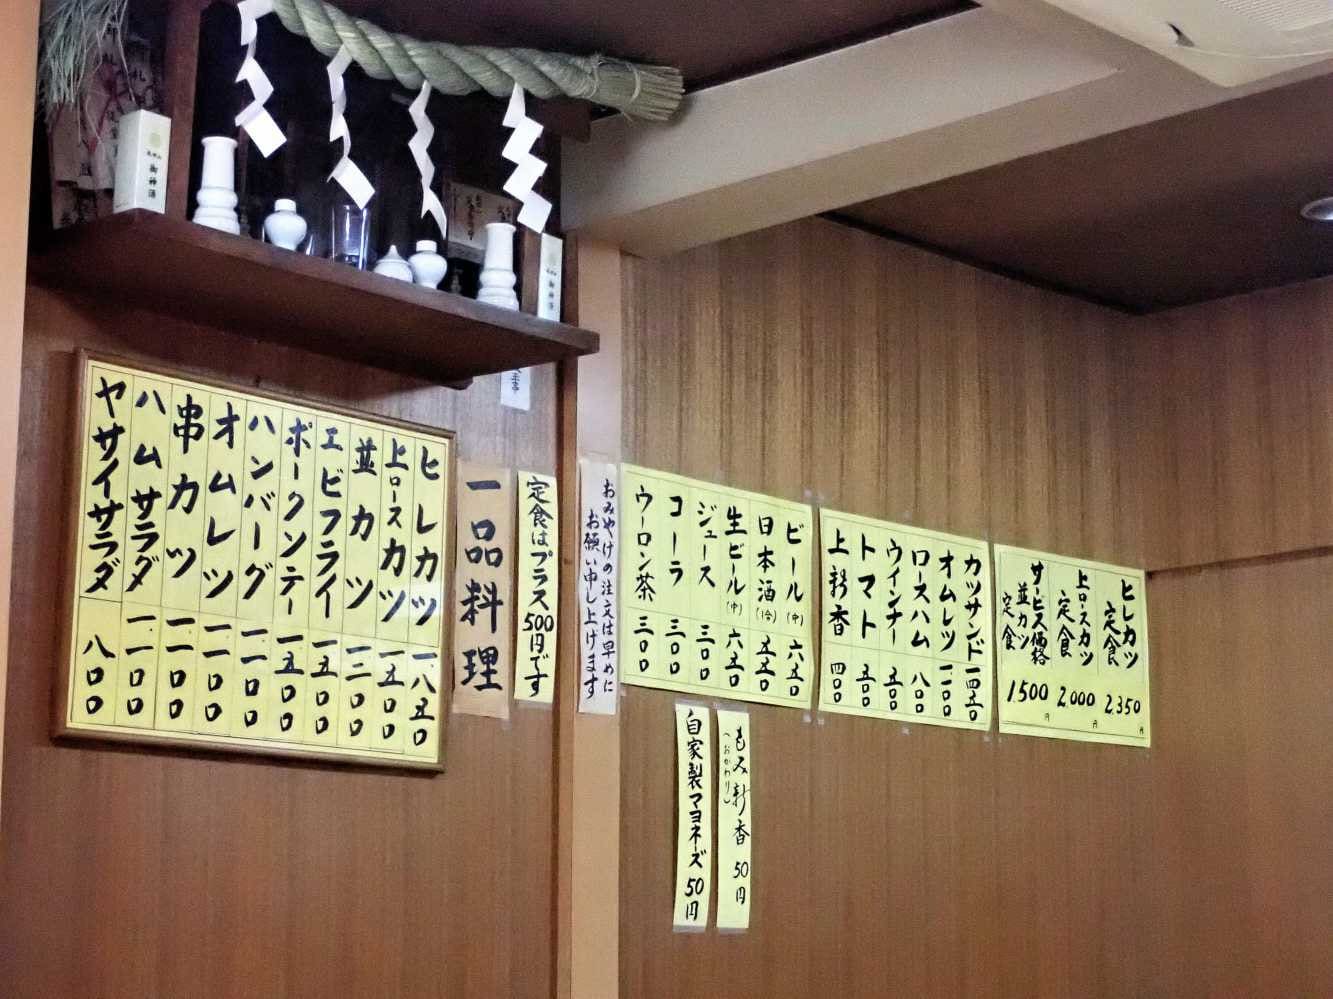 御神酒
御神酒
ヒレカツ 一.八五〇
上ロースカツ 一.五〇〇
並カツ 一.三〇〇
エビフライ 一.五〇〇
ポークソテー 一.五〇〇
ハンバーグ 一.一〇〇
オムレツ 一.一〇〇
串カツ 一.一〇〇
ハムサラダ 一.一〇〇
ヤサイサラダ 八〇〇
一品料理
定食はプラス500円です
おみやげの注文は早めに
お願い申し上げます
ビール(中) 六五〇
日本酒(1合) 五五〇
生ビール(中) 六五〇
ジュース 三〇〇
コーラ 三〇〇
ウーロン茶 三〇〇
カツサンド 一四五〇
オムレツ 一一〇〇
ロースハム 八〇〇
ウインナー 五〇〇
トマト 五〇〇
上新香 四〇〇
ヒレカツ定食 2,350円
上ロースカツ定食 2,000円
サービス価格 並カツ定食 1,500円
もみ新香 50円
(おかわり)
自家製マヨネーズ 50円